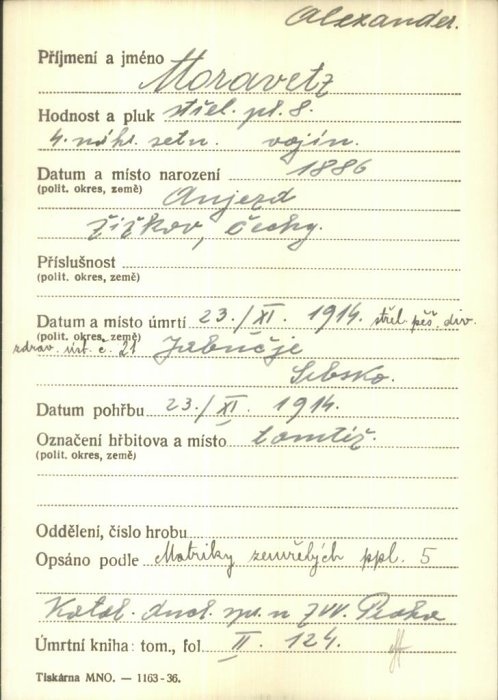 Alexander.
Příjmení a jméno Moravetz
Hodnost a pluk střel. pl. 8.
4. náhr. setn. vojín.
Datum a místo narození 1886
(polit. okres, země) Aujezd
Žižkov, Čechy.
Příslušnost
(polit. okres, země)
Datum a místo úmrtí 23./XI. 1914. střel. pěš. div.
(polit. okres, země)
zdrav. úst. č. 21 Jabučje
Srbsko.
Datum pohřbu 23./XI. 1914.
Označení hřbitova a místo tamtéž.
(polit. okres, země)
Oddělení, číslo hrobu
Opsáno podle Matriky zemřelých ppl. 5
Katol. duch. spr. n ZVV. Praha
Úmrtní kniha: tom., fol. II. 124.
Tiskárna MNO. — 1163-36.